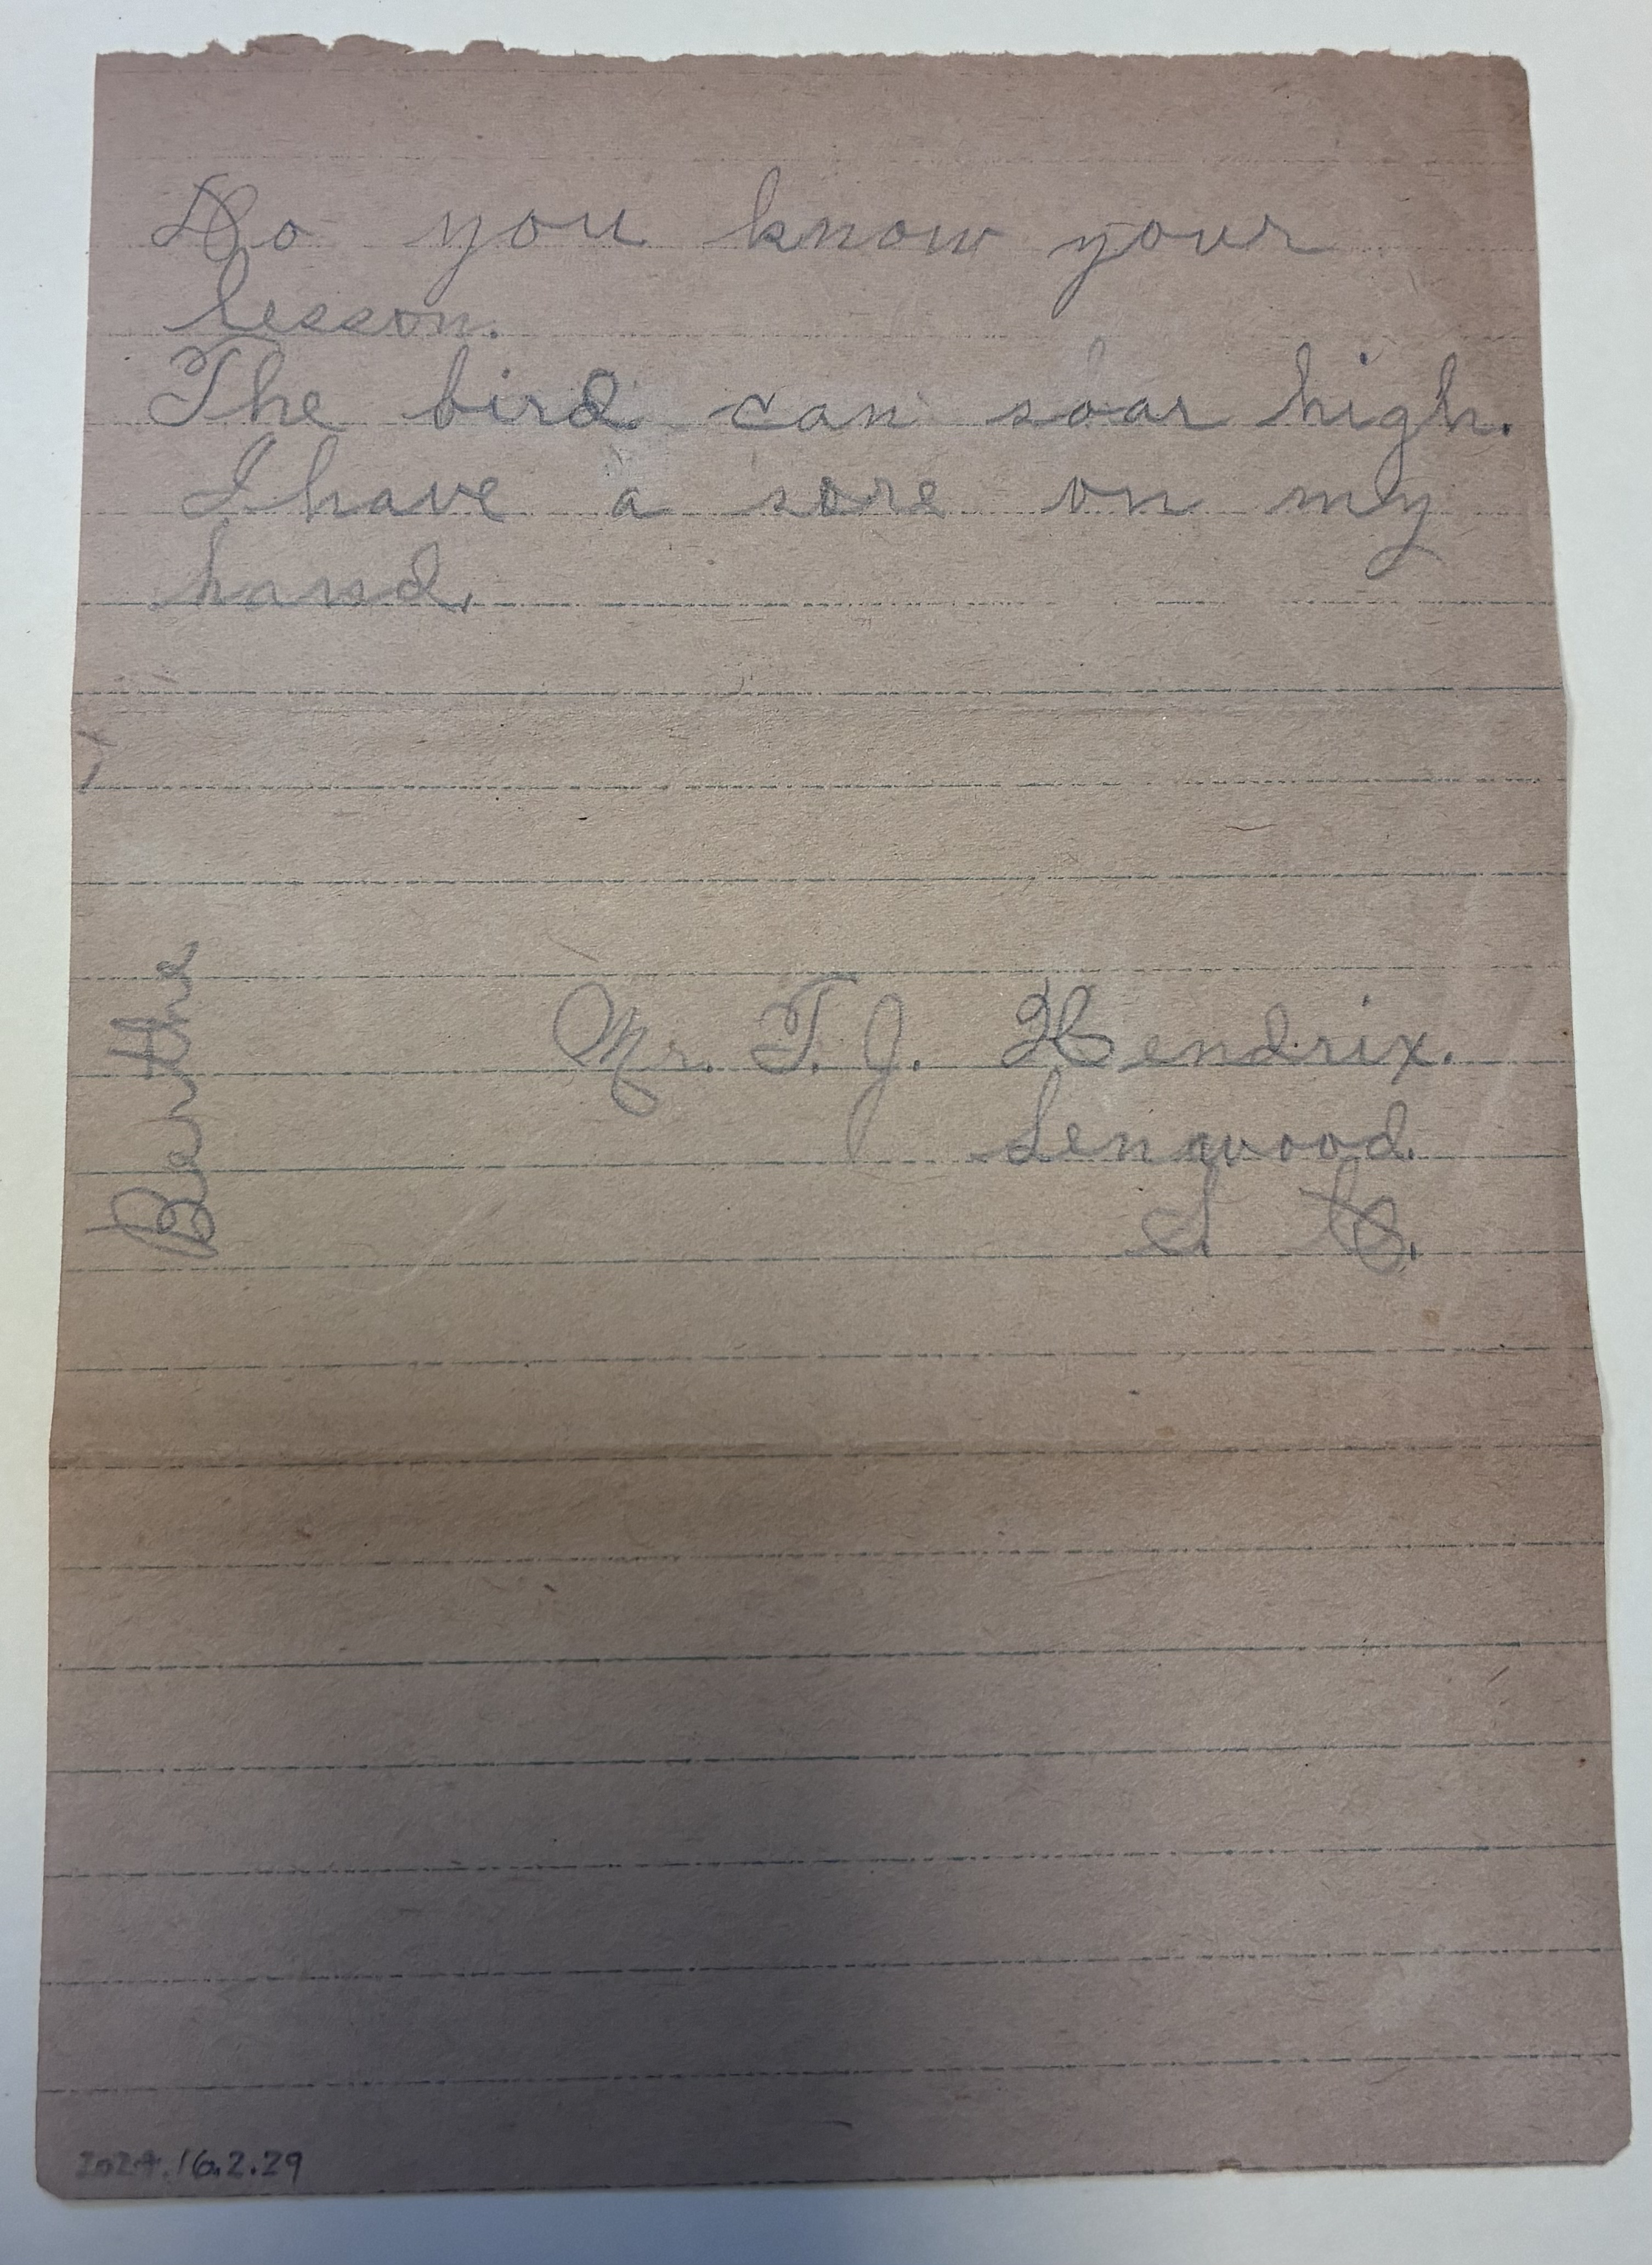 Do you know your
lesson.
The bird can soar high.
I have a sore on my
hand.
Bertha
Mr. T. J. Hendrix.
Lenwood.
S. C.
2024.16.2.29